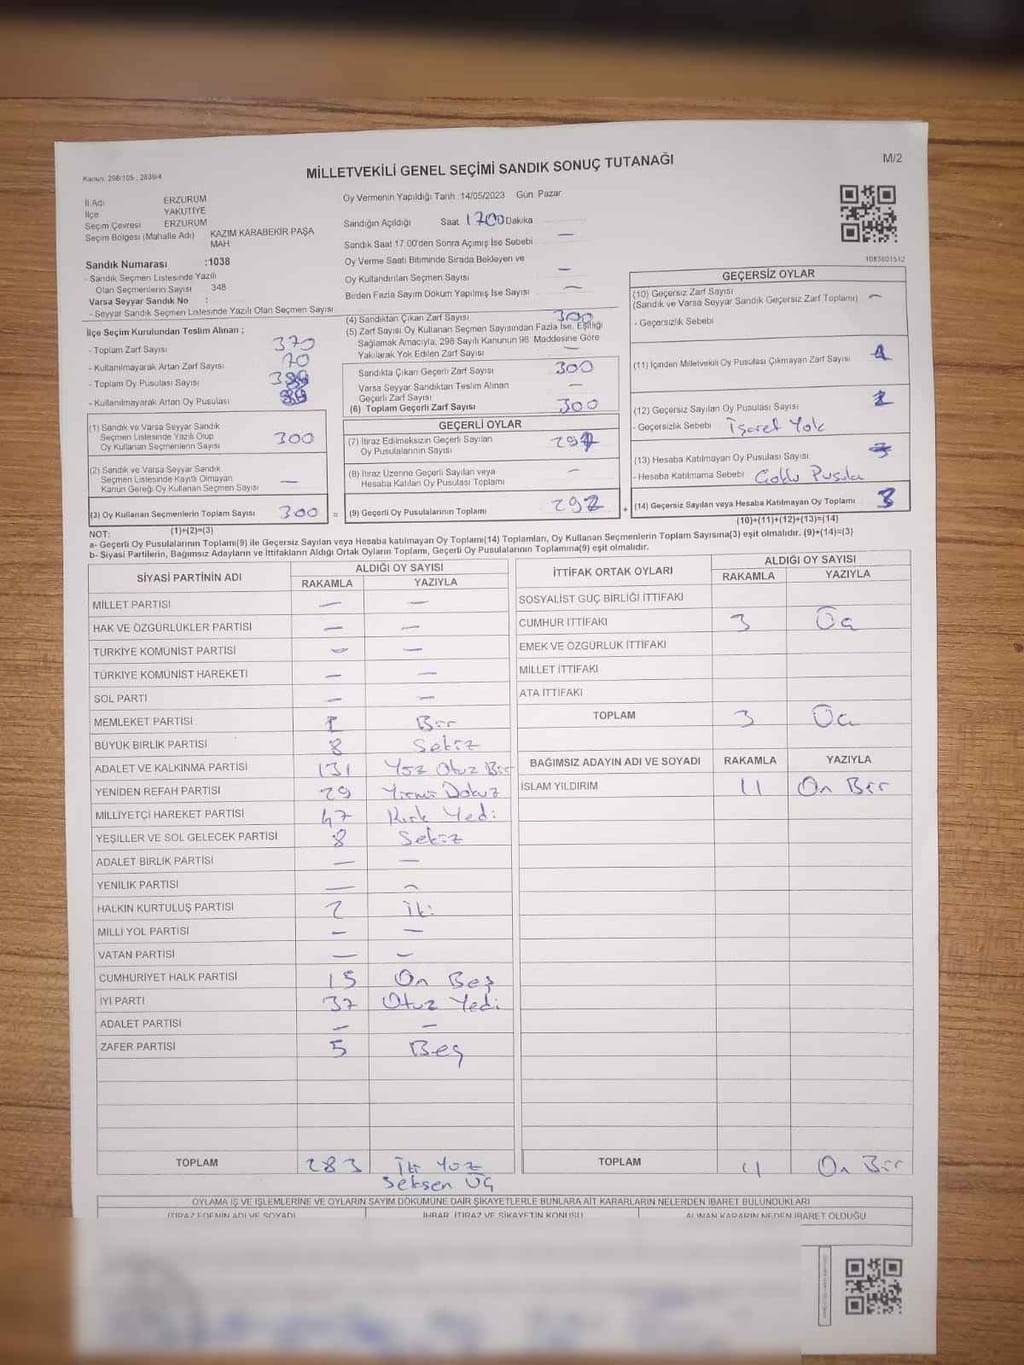 Kanun: 298/105, 2839/4
MİLLETVEKİLİ GENEL SEÇİMİ SANDIK SONUÇ TUTANAĞI
M/2
İl Adı ERZURUM
İlçe YAKUTİYE
Seçim Çevresi ERZURUM
Seçim Bölgesi (Mahalle Adı) KAZIM KARABEKİR PAŞA
MAH
Sandık Numarası :1038
- Sandık Seçmen Listesinde Yazılı
Olan Seçmenlerin Sayısı 348
Varsa Seyyar Sandık No :
- Seyyar Sandık Seçmen Listesinde Yazılı Olan Seçmen Sayısı
Oy Vermenin Yapıldığı Tarih :14/05/2023 Gün: Pazar
Sandığın Açıldığı Saat 1700 Dakika
Sandık Saat 17.00'den Sonra Açımış İse Sebebi —
Oy Verme Saati Bitiminde Sırada Bekleyen ve
Oy Kullandırılan Seçmen Sayısı —
Birden Fazla Sayım Döküm Yapılmış İse Sayısı —
1083601512
İlçe Seçim Kurulundan Teslim Alınan ;
- Toplam Zarf Sayısı 370
- Kullanılmayarak Artan Zarf Sayısı 70
- Toplam Oy Pusulası Sayısı
- Kullanılmayarak Artan Oy Pusulası
(1) Sandık ve Varsa Seyyar Sandık
Seçmen Listesinde Yazılı Olup
Oy Kullanan Seçmenlerin Sayısı 300
(2) Sandık ve Varsa Seyyar Sandık
Seçmen Listesinde Kayıtlı Olmayan
Kanun Gereği Oy Kullanan Seçmen Sayısı —
(3) Oy Kullanan Seçmenlerin Toplam Sayısı 300 =
(1)+(2)=(3)
(4) Sandıktan Çıkan Zarf Sayısı 300
(5) Zarf Sayısı Oy Kullanan Seçmen Sayısından Fazla İse, Eşitliği
Sağlamak Amacıyla, 298 Sayılı Kanunun 98. Maddesine Göre
Yakılarak Yok Edilen Zarf Sayısı —
Sandıkta Çıkan Geçerli Zarf Sayısı 300
Varsa Seyyar Sandıktan Teslim Alınan
Geçerli Zarf Sayısı —
(6) Toplam Geçerli Zarf Sayısı 300
GEÇERLİ OYLAR
(7) İtiraz Edilmeksizin Geçerli Sayılan
Oy Pusulalarının Sayısı 297
(8) İtiraz Üzerine Geçerli Sayılan veya
Hesaba Katılan Oy Pusulası Toplamı —
(9) Geçerli Oy Pusulalarının Toplamı 297 +
GEÇERSİZ OYLAR
(10) Geçersiz Zarf Sayısı
(Sandık ve Varsa Seyyar Sandık Geçersiz Zarf Toplamı) —
- Geçersizlik Sebebi
(11) İçinden Milletvekili Oy Pusulası Çıkmayan Zarf Sayısı
(12) Geçersiz Sayılan Oy Pusulası Sayısı
- Geçersizlik Sebebi İşaret Yok
(13) Hesaba Katılmayan Oy Pusulası Sayısı
- Hesaba Katılmama Sebebi Pusula
(14) Geçersiz Sayılan veya Hesaba Katılmayan Oy Toplamı 3
(10)+(11)+(12)+(13)=(14)
NOT:
a- Geçerli Oy Pusulalarının Toplamı(9) ile Geçersiz Sayılan veya Hesaba katılmayan Oy Toplamı(14) Toplamları, Oy Kullanan Seçmenlerin Toplam Sayısına(3) eşit olmalıdır. (9)+(14)=(3)
b- Siyasi Partilerin, Bağımsız Adayların ve İttifakların Aldığı Ortak Oyların Toplamı, Geçerli Oy Pusulalarının Toplamına(9) eşit olmalıdır.
SİYASİ PARTİNİN ADI ALDIĞI OY SAYISI
RAKAMLA YAZIYLA
MİLLET PARTİSİ — —
HAK VE ÖZGÜRLÜKLER PARTİSİ — —
TÜRKİYE KOMÜNİST PARTİSİ — —
TÜRKİYE KOMÜNİST HAREKETİ — —
SOL PARTİ — —
MEMLEKET PARTİSİ 1 Bir
BÜYÜK BİRLİK PARTİSİ 8 Sekiz
ADALET VE KALKINMA PARTİSİ 131 Yüz Otuz Bir
YENİDEN REFAH PARTİSİ 29 Yirmi Dokuz
MİLLİYETÇİ HAREKET PARTİSİ 47 Kırk Yedi
YEŞİLLER VE SOL GELECEK PARTİSİ 8 Sekiz
ADALET BİRLİK PARTİSİ — —
YENİLİK PARTİSİ — —
HALKIN KURTULUŞ PARTİSİ 2 İki
MİLLİ YOL PARTİSİ — —
VATAN PARTİSİ — —
CUMHURİYET HALK PARTİSİ 15 On Beş
İYİ PARTİ 37 Otuz Yedi
ADALET PARTİSİ — —
ZAFER PARTİSİ 5 Beş
TOPLAM 283 İki Yüz
Seksen Üç
İTTİFAK ORTAK OYLARI ALDIĞI OY SAYISI
RAKAMLA YAZIYLA
SOSYALİST GÜÇ BİRLİĞİ İTTİFAKI
CUMHUR İTTİFAKI 3 Üç
EMEK VE ÖZGÜRLÜK İTTİFAKI
MİLLET İTTİFAKI
ATA İTTİFAKI
TOPLAM 3 Üç
BAĞIMSIZ ADAYIN ADI VE SOYADI RAKAMLA YAZIYLA
İSLAM YILDIRIM 11 On Bir
TOPLAM 11 On Bir
OYLAMA İŞ VE İŞLEMLERİNE VE OYLARIN SAYIM DÖKÜMÜNE DAİR ŞİKAYETLERLE BUNLARA AİT KARARLARIN NELERDEN İBARET BULUNDUKLARI
İTİRAZ EDENİN ADI VE SOYADI İHBAR, İTİRAZ VE ŞİKAYETİN KONUSU ALINAN KARARIN NEDEN İBARET OLDUĞU